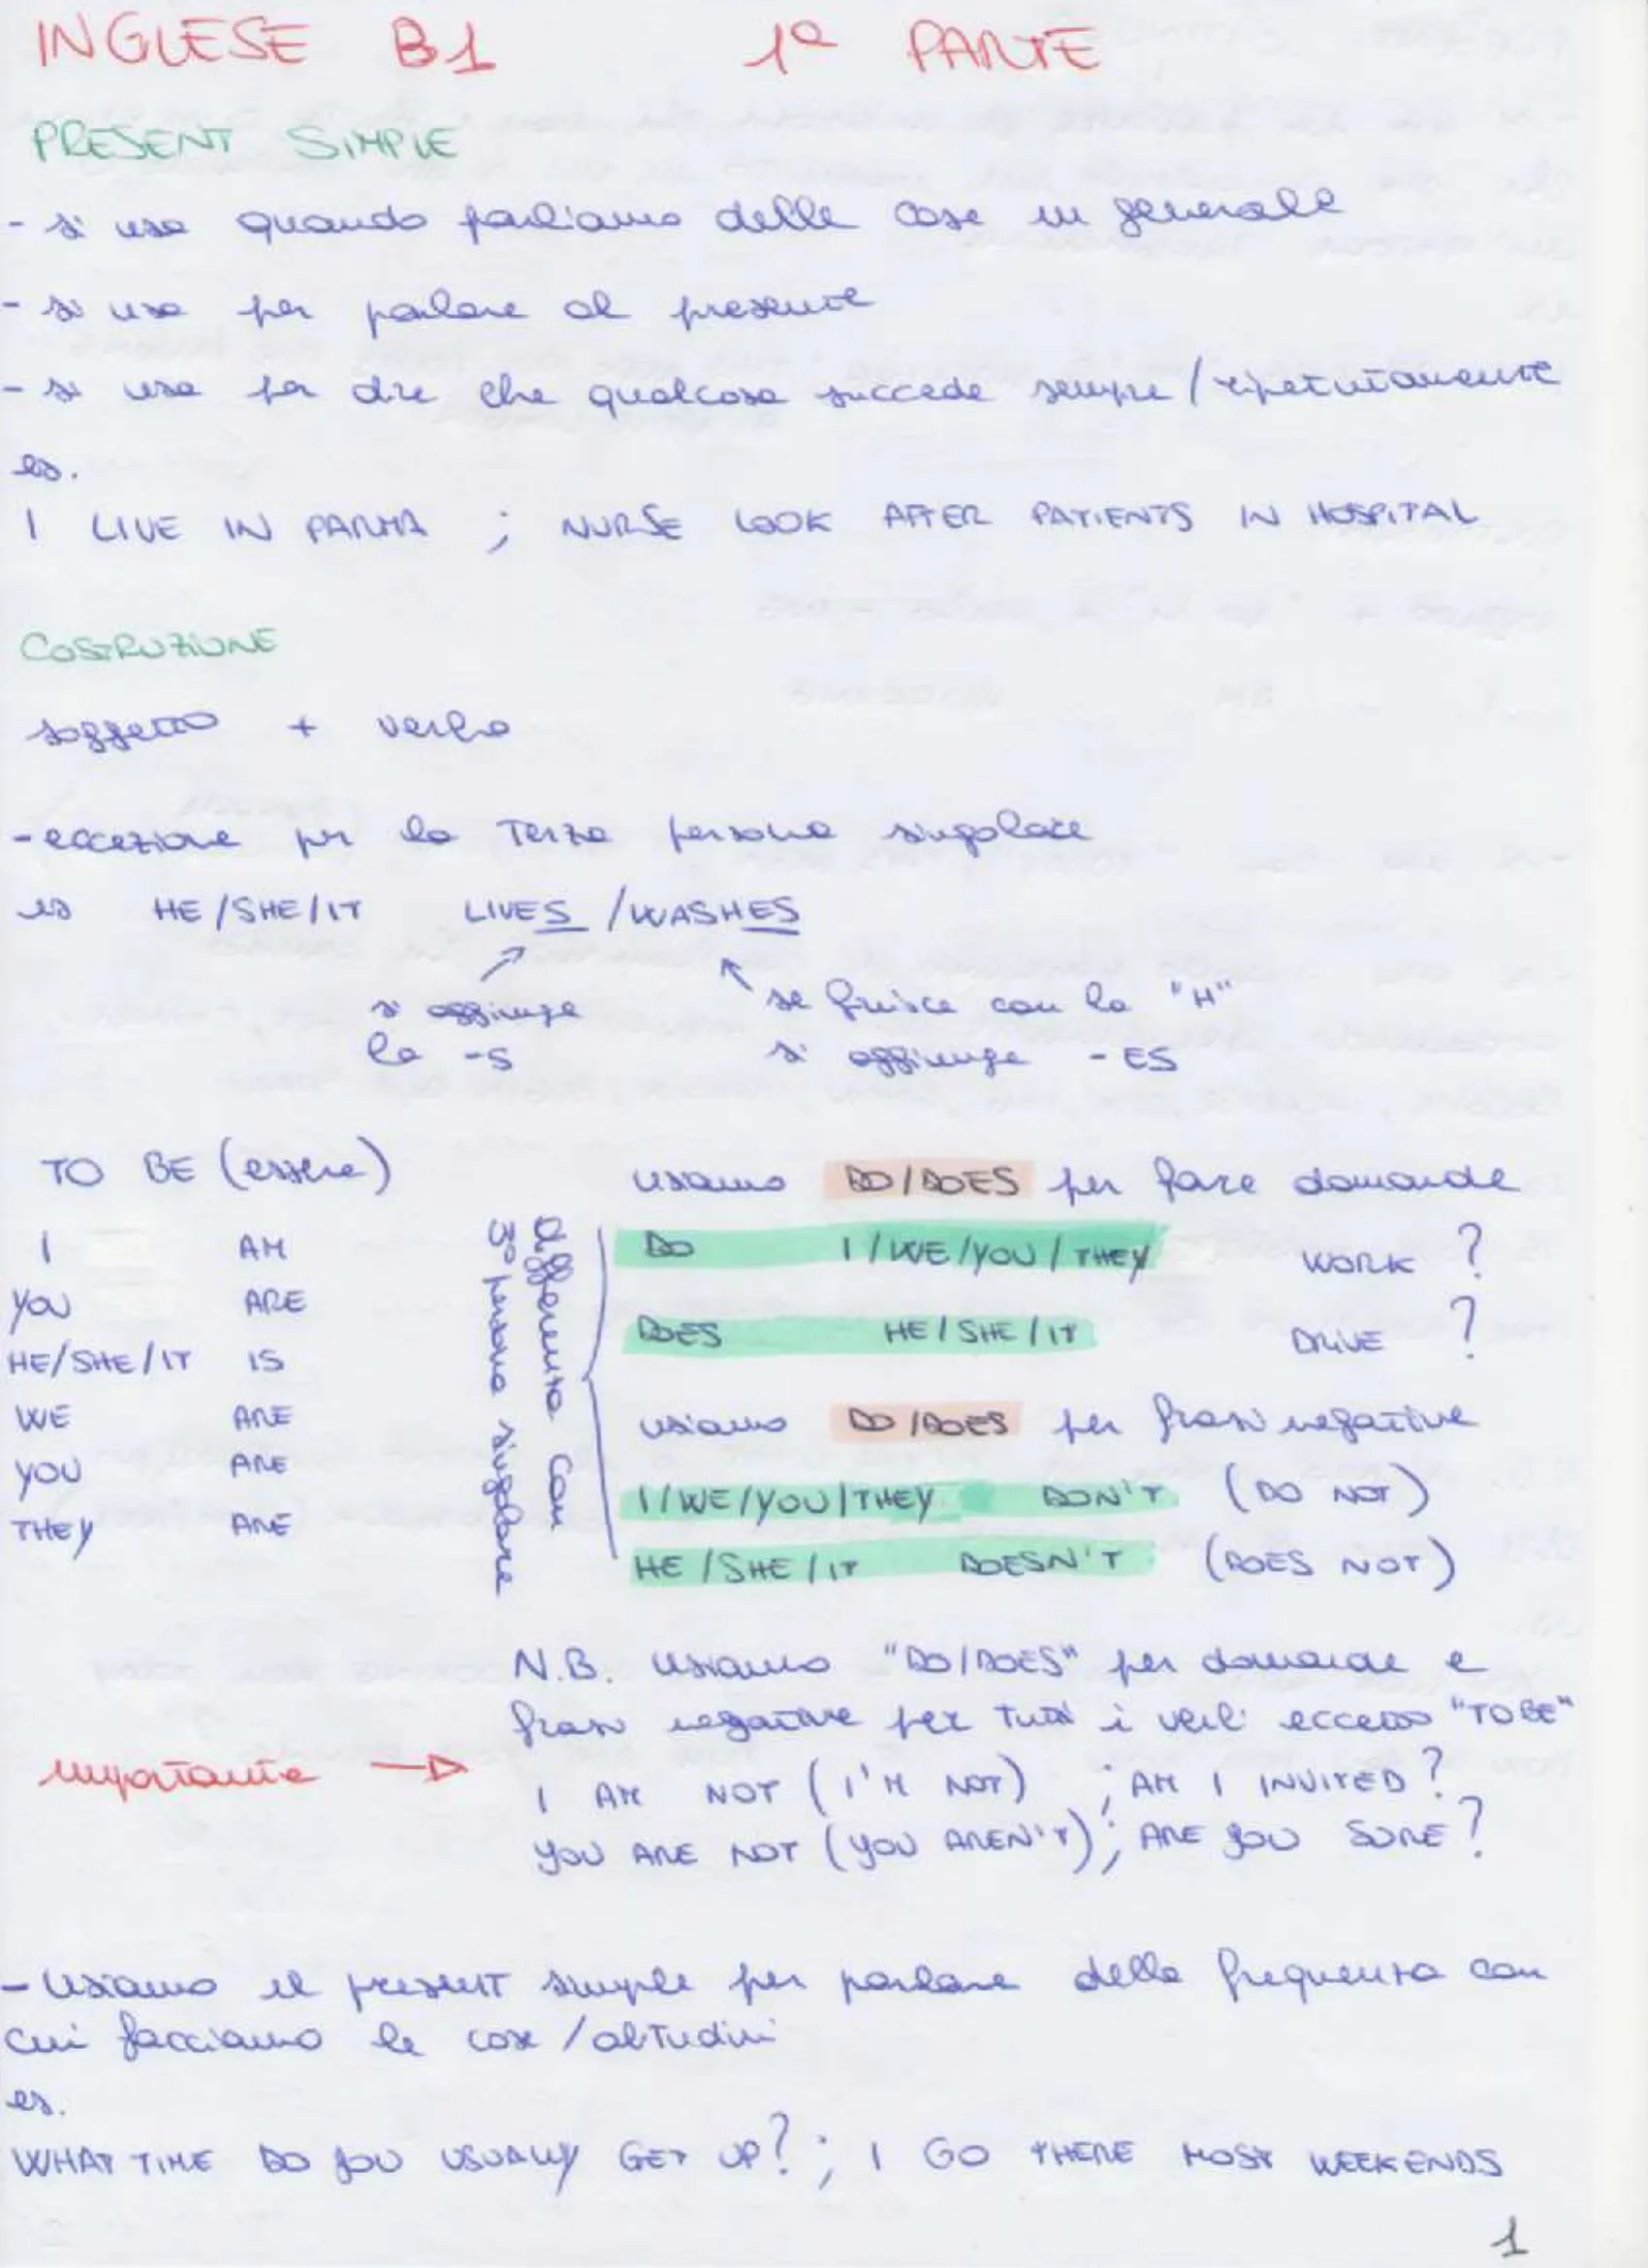 INGLESE B1 1ª PARTE
PRESENT SIMPLE
- si usa quando parliamo delle cose in generale
- si usa per parlare al presente
- si usa per dire che qualcosa succede sempre/ripetutamente
es.
I LIVE IN PARMA ; NURSE LOOK AFTER PATIENTS IN HOSPITAL
COSTRUZIONE
soggetto + verbo
- eccezione pr la terza persona singolare
es HE/SHE/IT LIVES /WASHES
si aggiunge
la -S
se finisce con la "H"
si aggiunge - ES
TO BE (essere)
I AM
YOU ARE
HE/SHE/IT IS
WE ARE
YOU ARE
THEY ARE
differenza con
3° persona singolare
usiamo DO/DOES per fare domande
DO I/WE/YOU/THEY WORK ?
DOES HE/SHE/IT DRIVE ?
usiamo DO/DOES per frasi negative
I/WE/YOU/THEY DON'T (DO NOT)
HE/SHE/IT DOESN'T (DOES NOT)
N.B. Usiamo "DO/DOES" per domande e
frasi negative per tutti i verbi eccetto "TO BE"
importante
I AM NOT (I'M NOT) ; AM I INVITED?
YOU ARE NOT (YOU AREN'T) ; ARE YOU SURE?
- Usiamo il present simple per parlare della frequenza con
cui facciamo le cose/abitudini
es.
WHAT TIME DO YOU USUALLY GET UP? ; I GO THERE MOST WEEKENDS
1